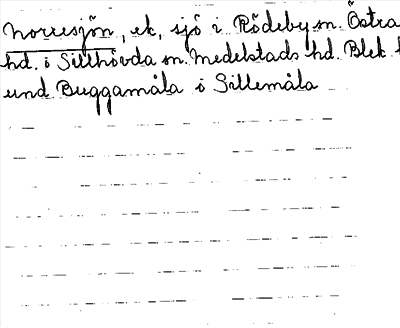 Norresjön, ek, sjö i Rödeby sn. Östra
hd. i Sillhövda sn. Medelstads hd. Blek.
und Buggamåla o Sillemåla